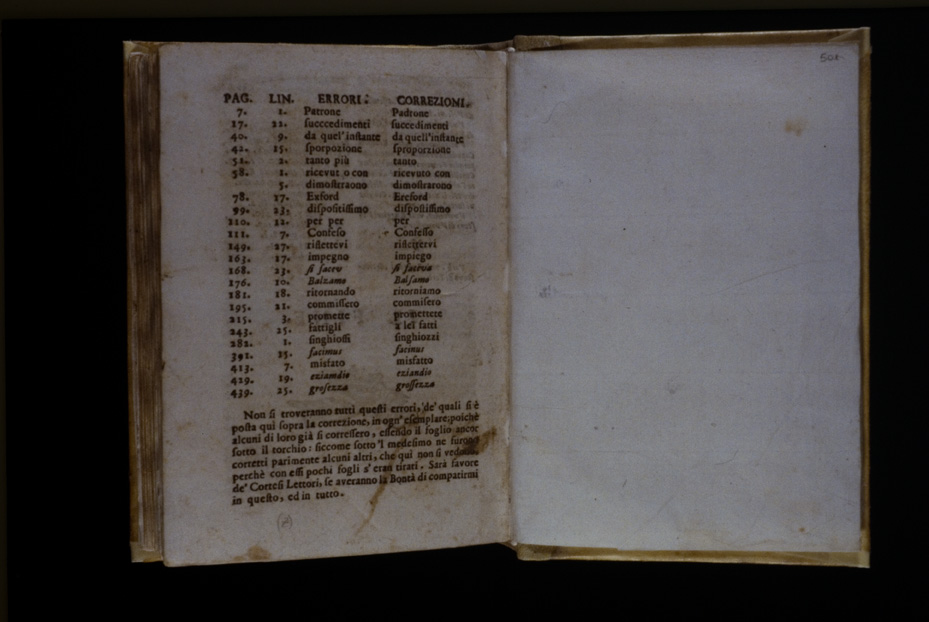 PAG. LIN. ERRORI. CORREZIONI.
7. 1. Patrone Padrone
17. 22. succcedimenti succedimenti
40. 9. da quel'instante da quell'instante
42. 15. sporpozione sproporzione
51. 2. tanto più tanto
58. 1. ricevut o con ricevuto con
5. dimostraono dimostrarono
78. 17. Exford Ereford
99. 23. dispositissimo dispostissimo
110. 12. per per per
111. 7. Confeso Confesso
149. 27. riflettevi
163. 17. impegno impiego
168. 23. si facev si faceva
176. 10. Balzamo Balsamo
181. 18. ritornando ritorniamo
195. 21. commissero commisero
215. 3. promette promettete
243. 25. fattigli a lei fatti
282. 1. singhiossi singhiozzi
391. 15. facimus facinus
413. 7. misfato misfatto
429. 19. eziandio eziandio
439. 25. grosezza grossezza
Non si troveranno tutti questi errori, de' quali si è
posta quì sopra la correzione, in ogn' esemplare; poichè
alcuni di loro già si corressero, essendo il foglio ancor
sotto il torchio: siccome sotto 'l medesimo ne furono
corretti parimente alcuni altri, che quì non si vedono,
perchè con essi pochi fogli s' eran tirati. Sarà favore
de' Cortesi Lettori, se averanno la Bontà di compatirmi
in questo, ed in tutto.